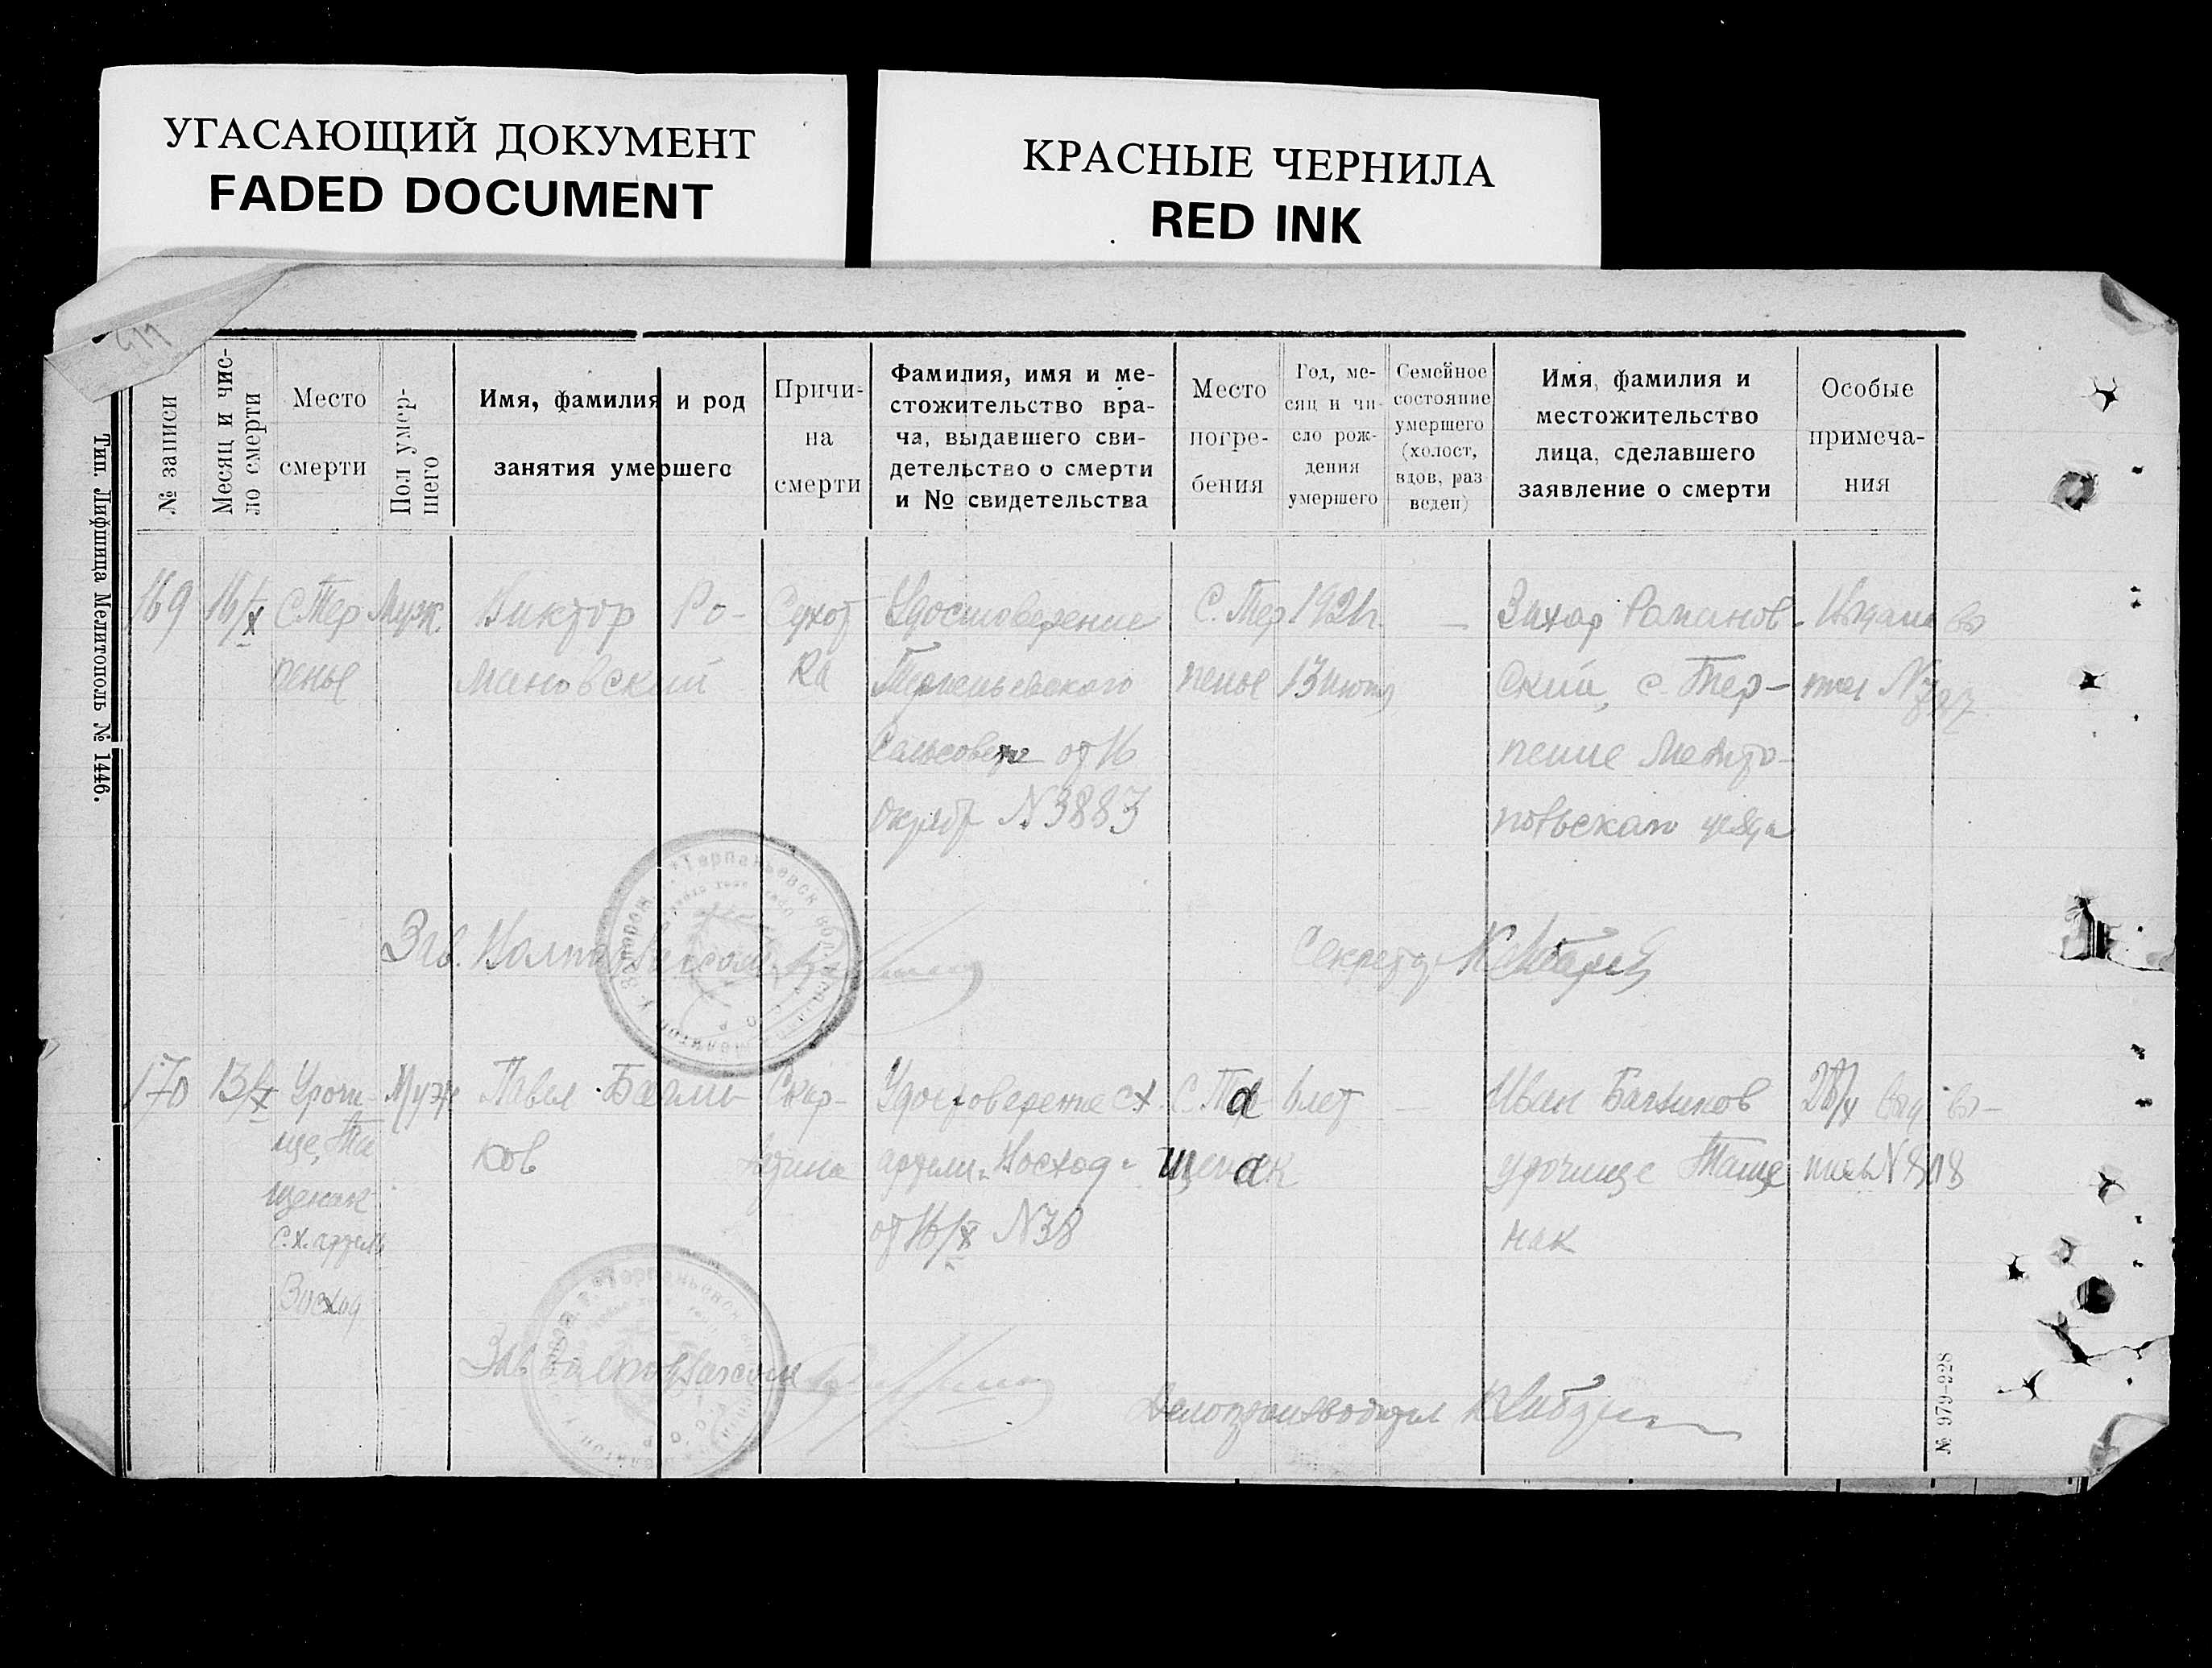 УГАСАЮЩИЙ ДОКУМЕНТ
FADED DOCUMENT
КРАСНЫЕ ЧЕРНИЛА
RED INK
Тип. Лифшица Мелитополь № 1446.
№ записи
Месяц и чис-
ло смерти
Место
смерти
Пол умер-
шего
Имя, фамилия и род
занятия умершего
Причи-
на
смерти
Фамилия, имя и ме-
стожительство вра-
ча, выдавшего сви-
детельство о смерти
и № свидетельства
Место
погре-
бения
Год, ме-
сяц и чи-
сло рож-
дения
умершего
Семейное
состояние
умершего
(холост,
вдов, раз
веден)
Имя, фамилия и
местожительство
лица, сделавшего
заявление о смерти
Особые
примеча-
ния
169
16/X
С. Тер
пенье
Муж.
Виктор Ро-
мановский
Сухот
ка
Удостоверение
Терпеньевского
Сельсовета от 16
октяб N3883
С. Тер
пенье
1921г.
13 июня
—
Захар Романов-
ский, с. Тер-
пение Мелито-
польскаго уезда
Зав.
Секретар
170
13/X
Урочи-
ще, Та
щенак
с.х. артель
Восход
Муж
Павел Багли
ков
Скар-
латина
Удостоверение с х
артели "Восход"
от 16/X N38
С. Та
щенак
6 лет
—
Иван Багликов
урочище Таще
нак
Зав
Делопроизводител
№ 979—228